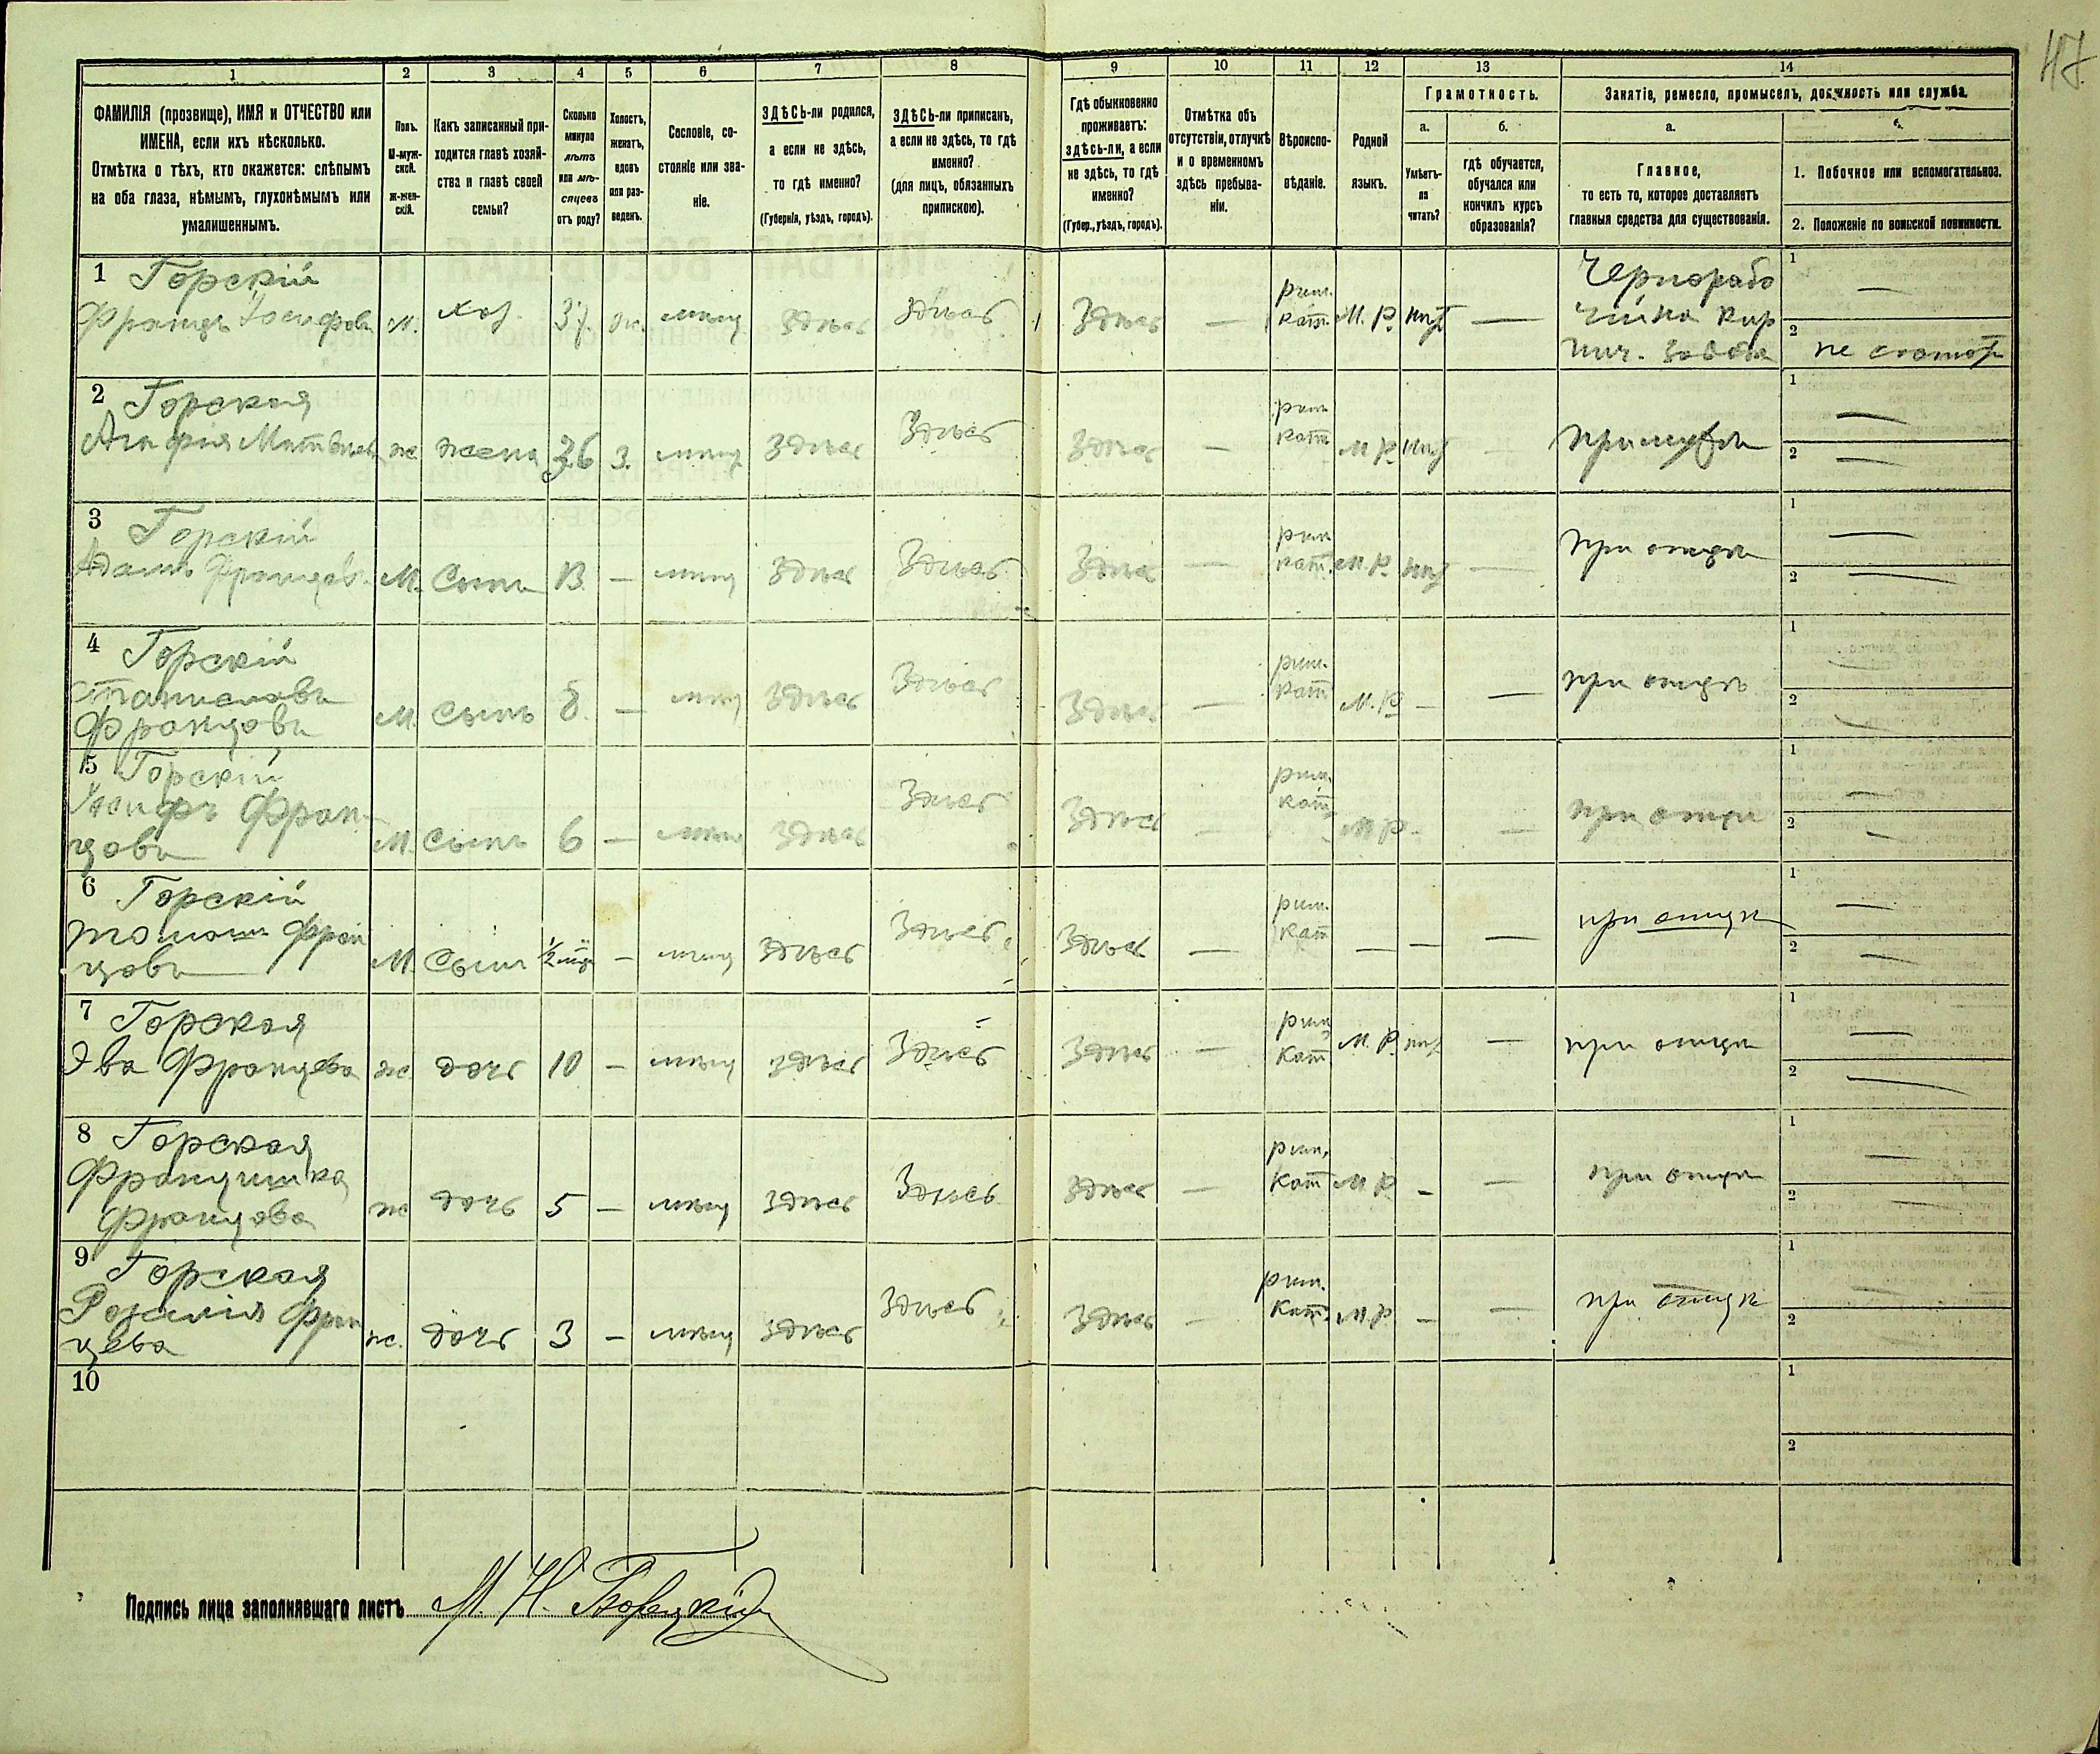 47
1 2 3 4 5 6 7 8 9 10 11 12 13 14
ФАМИЛІЯ (прозвище), ИМЯ и ОТЧЕСТВО или
ИМЕНА, если ихъ нѣсколько.
Отмѣтка о тѣхъ, кто окажется: слѣпымъ
на оба глаза, нѣмымъ, глухонѣмымъ или
умалишеннымъ.
Полъ.
М-муж-
ской.
Ж-жен-
скій.
Какъ записанный при-
ходится главѣ хозяй-
ства и главѣ своей
семьи?
Сколько
минуло
лѣтъ
или мѣ-
сяцевъ
отъ роду?
Холостъ,
женатъ,
вдовъ
или раз-
веденъ.
Сословіе, со-
стояніе или зва-
ніе.
ЗДѢСЬ-ли родился,
а если не здѣсь,
то гдѣ именно?
(Губернія, уѣздъ, городъ).
ЗДѢСЬ-ли приписанъ,
а если не здѣсь, то гдѣ
именно?
(для лицъ, обязанныхъ
припискою).
Гдѣ обыкновенно
проживаетъ:
здѣсь-ли, а если
не здѣсь, то гдѣ
именно?
(Губер., уѣздъ, городъ).
Отмѣтка объ
отсутствіи, отлучкѣ
и о временномъ
здѣсь пребыва-
ніи.
Вѣроиспо-
вѣданіе.
Родной
языкъ.
Грамотность.
а.
Умѣетъ-
ли
читать?
б.
гдѣ обучается,
обучался или
кончилъ курсъ
образованія?
Занятіе, ремесло, промыселъ, должность или служба.
а.
Главное,
то есть то, которое доставляетъ
главныя средства для существованія.
б.
1. Побочное или вспомогательное.
2. Положеніе по воинской повинности.
1 Горскій
Францъ Іосифовъ М. хоз. 37. мѣщ здѣсь здѣсь здѣсь — рим. кат. М. Р. нѣт —
Чернорабо
чій на кир
пич. завода
1 —
2 не состот
2 Горская
Агафія Матвѣев ж жена 36 з. мѣщ здѣсь здѣсь здѣсь — рим кат М Р нѣт —
1 —
2 —
3 Горскій
Адамъ Францовъ М. Сынъ 13. — мѣщ здѣсь здѣсь здѣсь — рим кат. М. Р. нѣт — при отцѣ
1 —
2 —
4 Горскій
Станиславъ
Францовъ М. Сынъ 8. — мѣщ здѣсь здѣсь здѣсь — рим. кат М. Р — — при отцѣ
1 —
2 —
5 Горскій
Іосифъ Фран-
цовъ М. Сынъ 6 — мѣщ здѣсь здѣсь здѣсь — рим. кат М Р — — при отцѣ
1 —
2 —
6 Горскій
Томашъ Фран
цовъ М. Сынъ — мѣщ здѣсь здѣсь здѣсь — рим. кат — — — при отцѣ
1 —
2 —
7 Горская
Эва Францова ж. дочь 10 — мѣщ здѣсь здѣсь здѣсь — рим кат М. Р. нѣт — при отцѣ
1 —
2 —
8 Горская
Францишка
Францова ж дочь 5 — мѣщ здѣсь здѣсь здѣсь — рим. кат М Р — — при отцѣ
1 —
2 —
9 Горская
Розалія Фран
цева ж. дочь 3 — мѣщ здѣсь здѣсь здѣсь — рим. кат. М Р — — при отцѣ
1 —
2 —
10
1
2
Подпись лица заполнявшаго листъ М. Н.